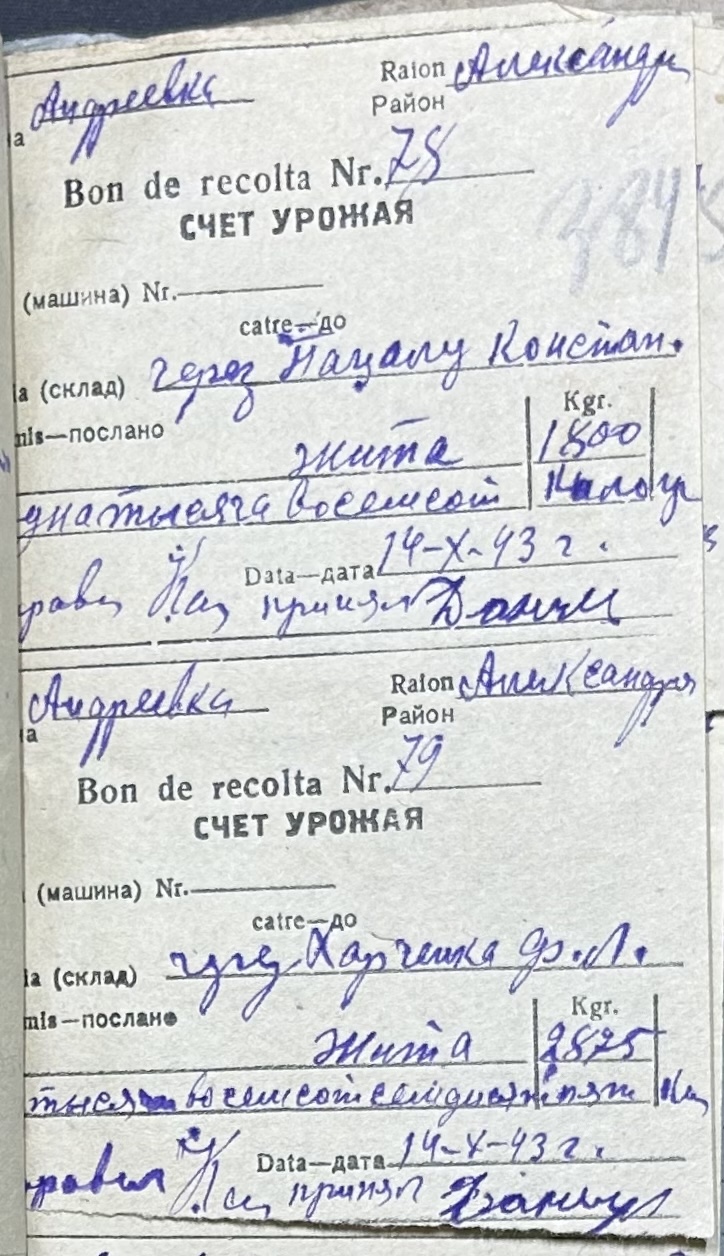 Андреевка Raion Александр
а Район
Bon de recolta Nr. 78
СЧЕТ УРОЖАЯ
(машина) Nr.
catre—до
а (склад) через Нацалу Констан.
mis—послано Kgr.
жита 1800
дна тысяча восемсот Килогр
Data—дата 14-X-43 г.
принял
Андреевка Raion Александр
а Район
Bon de recolta Nr. 79
СЧЕТ УРОЖАЯ
(машина) Nr.
catre—до
ia (склад) через Харченка Ф. Л.
mis—послано Kgr.
Жита 2875
тысяч восемсот семдисят пят
Data—дата 14-X-43 г.
равил принял